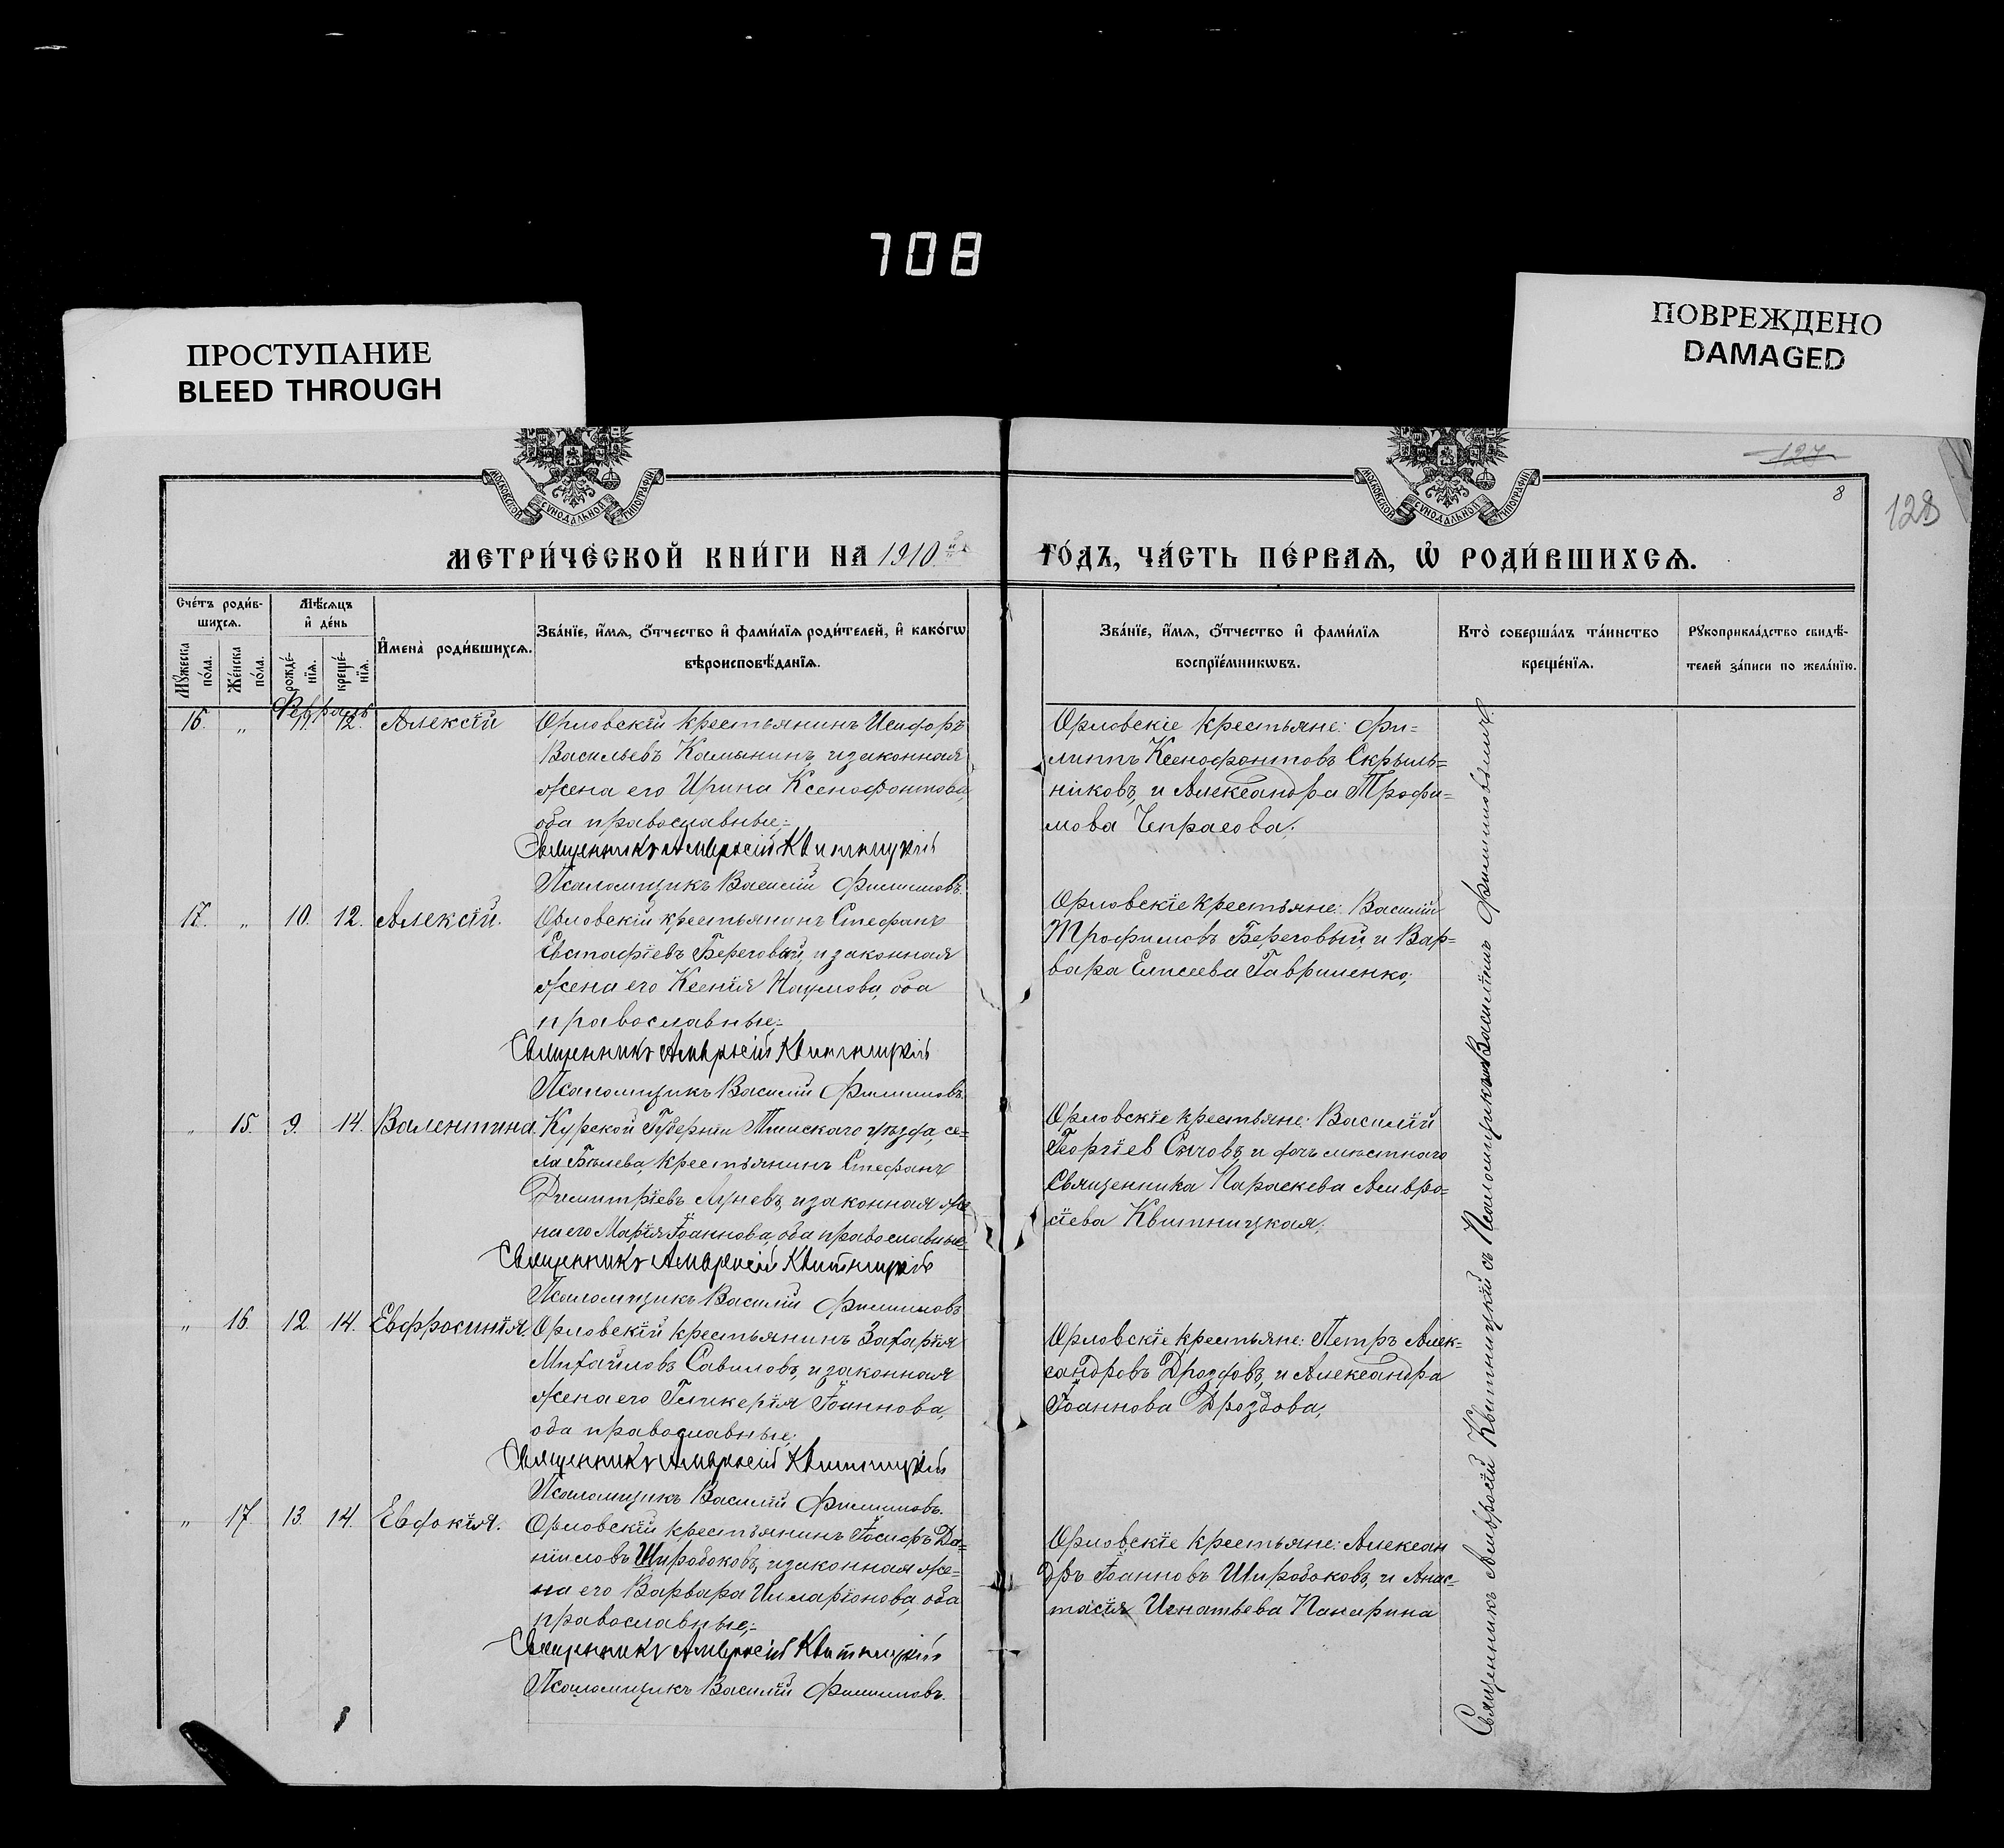 708
ПРОСТУПАНИЕ
BLEED THROUGH
ПОВРЕЖДЕНО
DAMAGED
МОСКОВСКОЙ СѴНОДАЛЬНОЙ ТИПОГРАФІИ
МОСКОВСКОЙ СѴНОДАЛЬНОЙ ТИПОГРАФІИ
127
8
128
МЕТРИ́ЧЕСКОЙ КНИ́ГИ НА 1910 й
ГО́ДЪ, ЧА́СТЬ ПЕ́РВАѦ, Ѡ҆ РОДИ́ВШИХСѦ.
Сче́тъ роди́в-
шихсѧ.
Мѣ́сѧцъ
и҆ де́нь
Мꙋ́жеска
по́ла.
Же́нска
по́ла.
рожде́-
нїѧ.
креще́-
нїѧ.
И҆мена̀ роди́вшихсѧ.
Зва́нїе, и҆́мѧ, ѻ҆́тчество и҆ фами́лїѧ роди́телей, и҆ како́гѡ
вѣроисповѣ́данїѧ.
Зва́нїе, и҆́мѧ, ѻ҆́тчество и҆ фами́лїѧ
воспрїе́мникѡвъ.
Кто̀ соверша́лъ та́инство
креще́нїѧ.
Рꙋкоприкла́дство свидѣ́-
телей за́писи по жела́нїю.
Февраль
16. „ 11. 12. Алексій
Орловскій крестьянинъ Исидоръ
Васильевъ Калынинъ и законная
жена его Ирина Ксенофонтова,
оба православные;
Священникъ Амвросій Квитницкій
Псаломщикъ Василій Филиповъ.
Орловскіе крестьяне: Фи=
липпъ Ксенофонтовъ Скрыль=
никовъ, и Александра Трофи=
мова Чепрасова.
17. „ 10. 12. Алексій.
Орловскій крестьянинъ Стефанъ
Евстафіевъ Береговой, и законная
жена его Ксенія Наумова, оба
православные;
Священникъ Амвросій Квитницкій
Псаломщикъ Василій Филиповъ
Орловскіе крестьяне: Василій
Трофимовъ Береговый, и Вар=
вара Елисеева Гавриленко;
„ 15. 9. 14. Валентина.
Курской Губерніи Тимскаго уѣзда, се=
ла Бѣлева, крестьянинъ Стефанъ
Димитріевъ Луневъ, и законная же
на его Марія Іоаннова, оба православные
Священникъ Амвросій Квитницкій
Псаломщикъ Василій Филиповъ
Орловскіе крестьяне: Василій
Георгіев Сычовъ, и дочь мѣстнаго
Священника Параскева Амвро=
сіева Квитницкая.
„ 16. 12. 14. Евфросинія.
Орловскій крестьянинъ Захарія
Михайловъ Савиловъ, и законная
жена его Гликерія Іоаннова,
оба православные;
Священникъ Амвросій Квитницкій
Псаломщикъ Василій Филиповъ.
Орловскіе крестьяне: Петръ Алек=
сандровъ Дроздовъ, и Александра
Іоаннова Дроздова;
„ 17. 13. 14. Евдокія.
Орловскій крестьянинъ Іосифъ Да=
ніиловъ Широбоковъ, и законная же=
на его Варвара Илларіонова, оба
православные;
Священникъ Амвросій Квитницкій
Псаломщикъ Василій Филиповъ.
Орловскіе крестьяне: Алексан
дръ Іоанновъ Широбоковъ, и Анас=
тасія Игнатьева Панарина
Священникъ Амвросій Квитницкій съ Псаломщикомъ Василіемъ Филиповымъ.